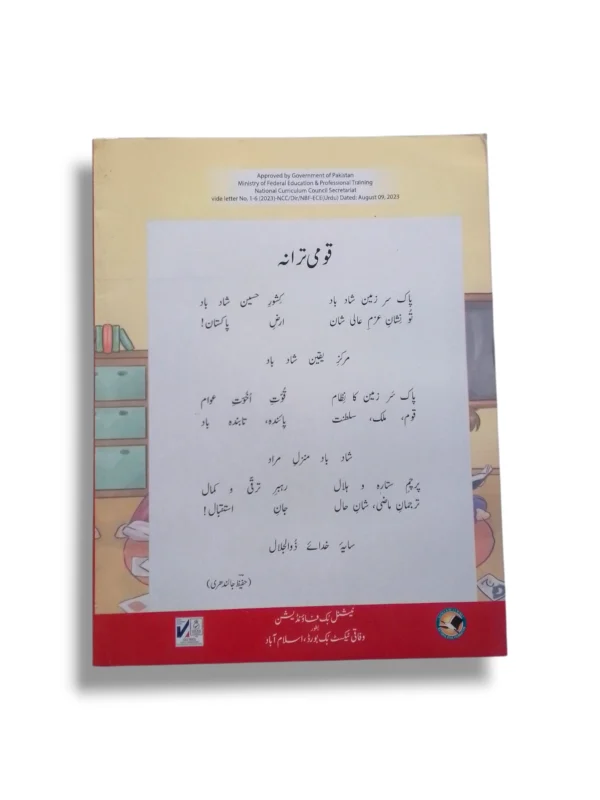 Approved by Government of Pakistan
Ministry of Federal Education & Professional Training
National Curriculum Council Secretariat
vide letter No. 1-6 (2023)-NCC/Dir/NBF-ECE(Urdu) Dated: August 09, 2023
قومی ترانہ
پاک سر زمین شاد باد کِشورِ حسین شاد باد
تُو نِشانِ عزمِ عالی شان ارضِ پاکستان!
مرکزِ یقین شاد باد
پاک سَر زمین کا نِظام قُوّتِ اُخُوّتِ عوام
قوم، ملک، سلطنت پائندہ، تابندہ باد
شاد باد منزلِ مراد
پرچمِ ستارہ و ہلال رہبرِ ترقّی و کمال
ترجمانِ ماضی، شانِ حال جانِ استقبال!
سایۂ خدائے ذُوالجلال
(حفیظ جالندھری)
نیشنل بک فاؤنڈیشن
بطور
وفاقی ٹیکسٹ بک بورڈ، اسلام آباد